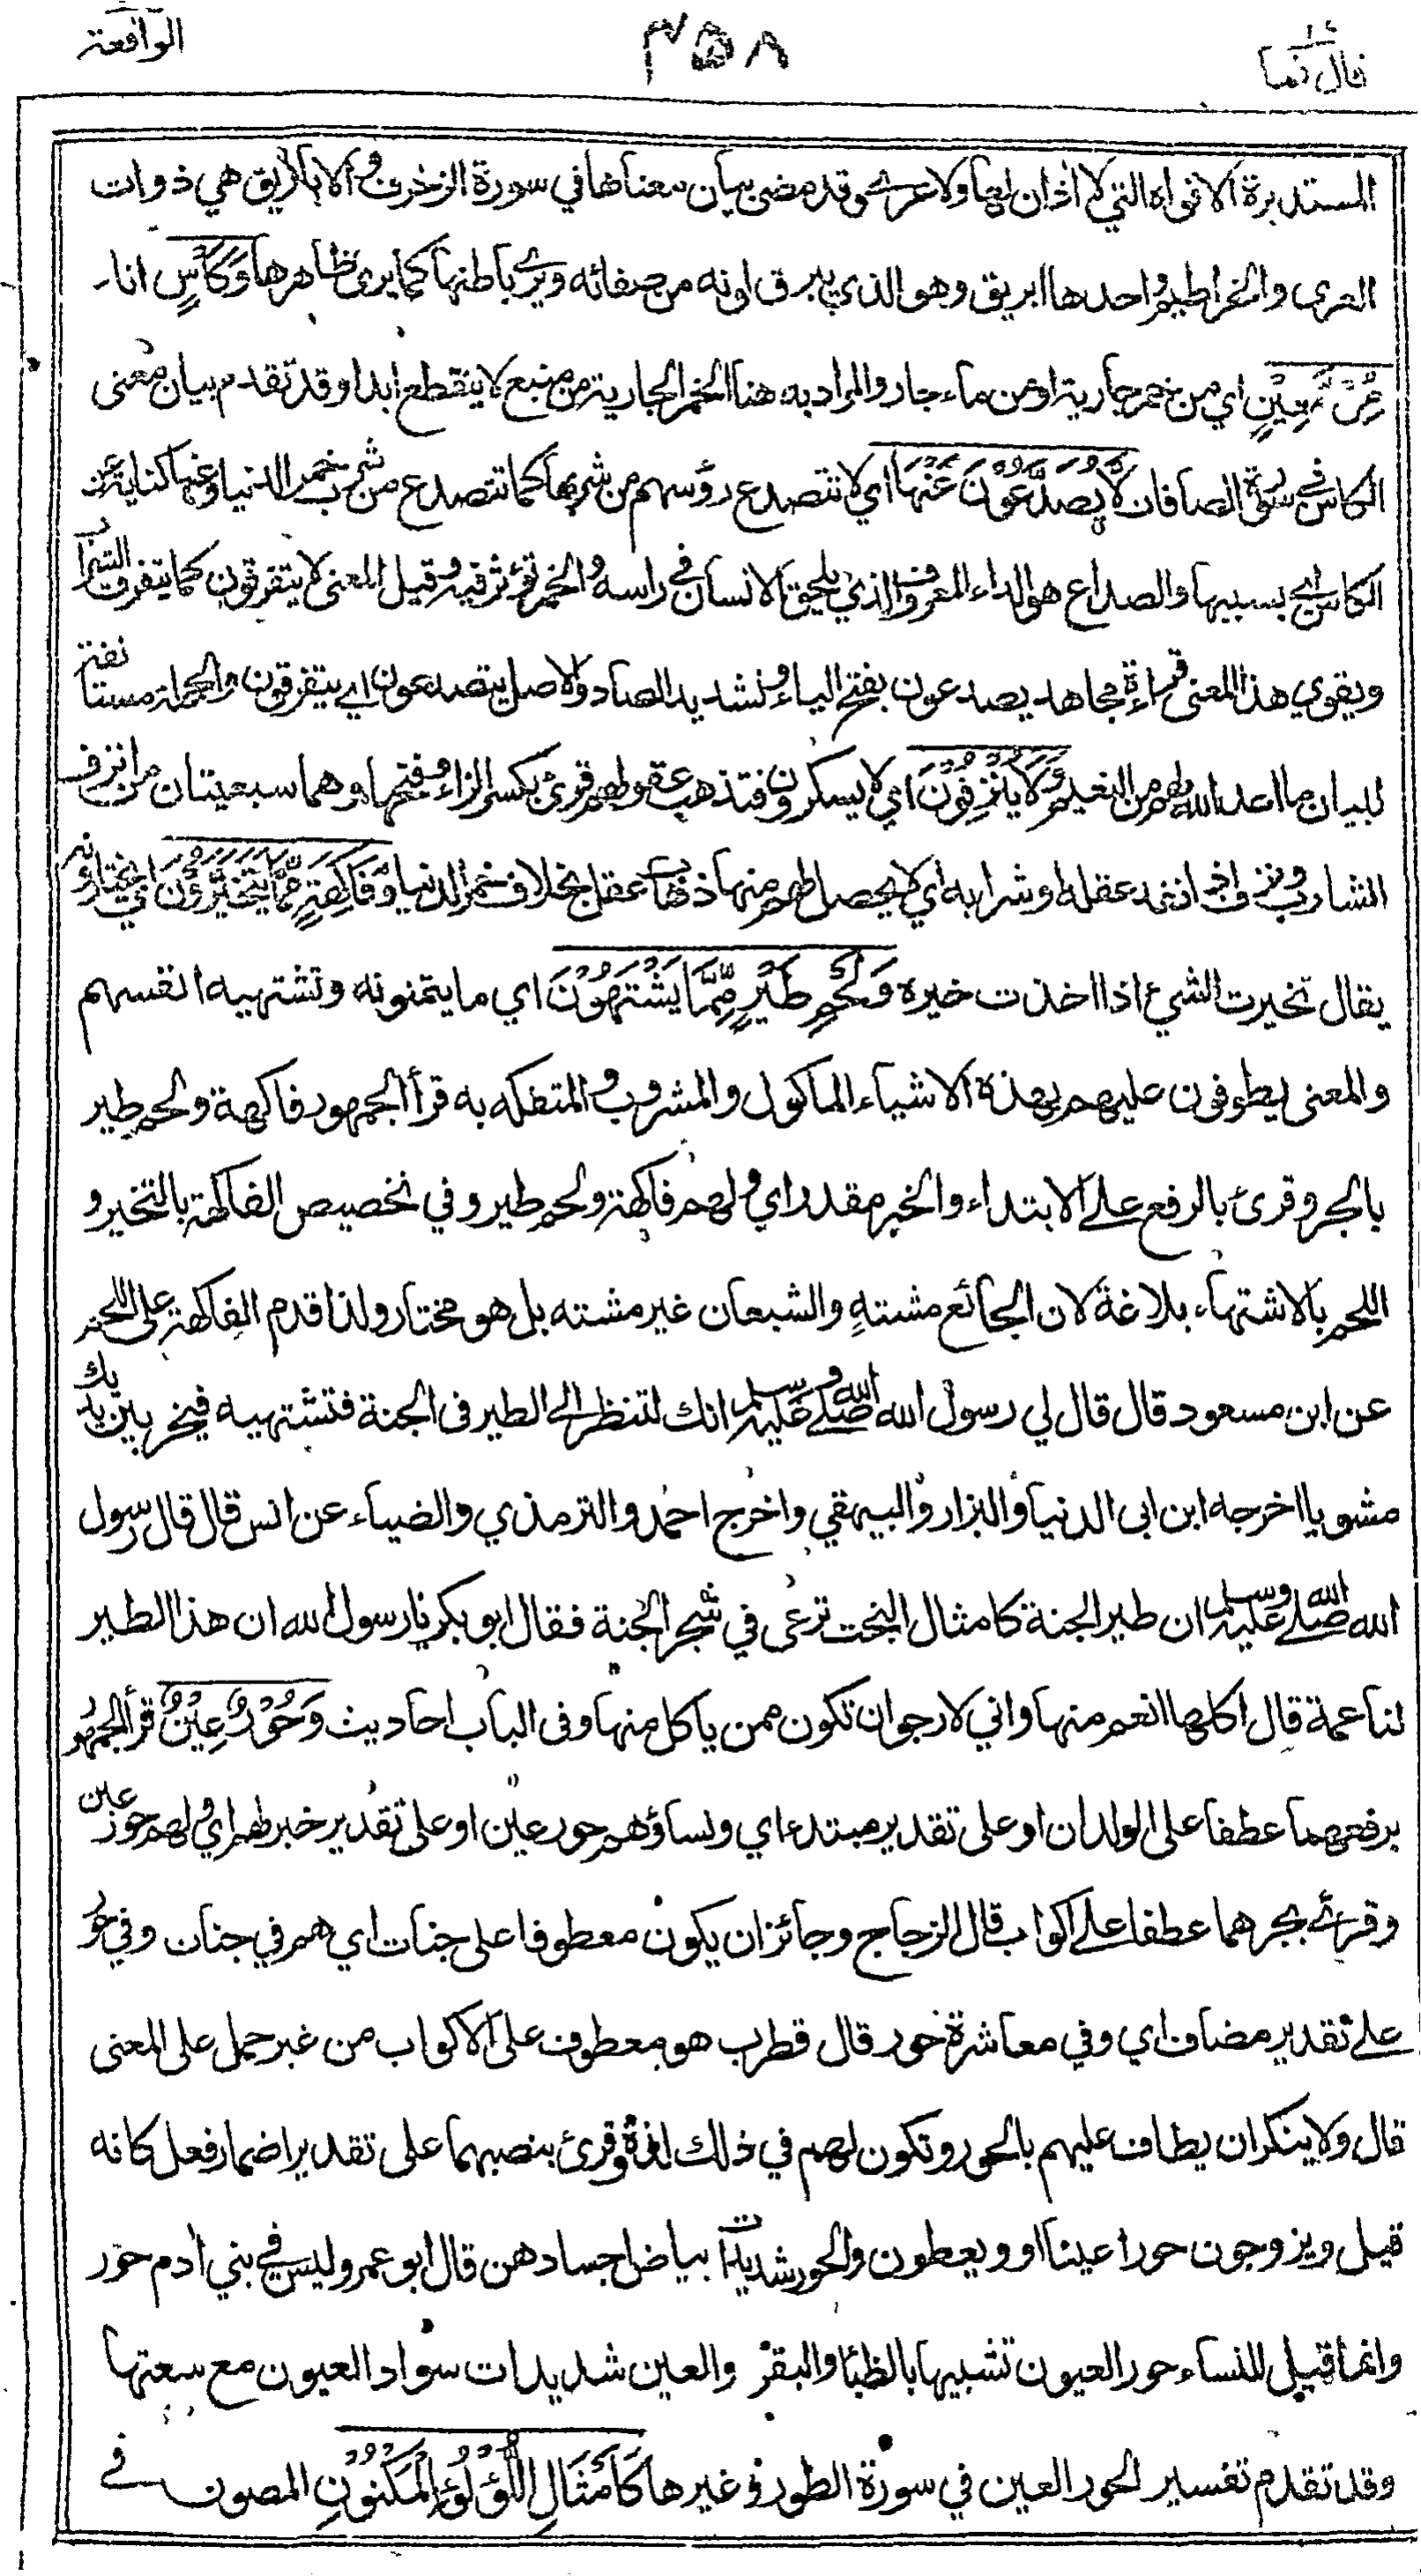 الواقعة
٣٥٨
قال فما
المستديرة الافواه التي لا اذان لها ولا عرى وقد مضى بيان معناها في سورة الزخرف والاباريق هي ذوات
العرى والخراطيم واحدها ابريق وهو الذي يبرق لونه من صفائه ويرى باطنها كما يرى ظاهرها وَكَأْسٍ اناء
مِّنْ مَّعِيْنٍ اي من خمر جارية او من ماء جار والمراد به هنا الخمر الجارية من منبع لا ينقطع ابدا وقد تقدم بيان معنى
الكاس في سورة الصافات لَا يُصَدَّعُوْنَ عَنْهَا اي لا تتصدع رؤسهم من شربها كما تتصدع من شرب خمر الدنيا وعنها كناية عن
الكاس اي بسببها والصداع هو الداء المعروف الذي يلحق الانسان في راسه والخمر تؤثر فيه وقيل المعنى لا يتفرقون كما يتفرق الشراب
ويقوي هذا المعنى قراءة مجاهد يصدعون بفتح الياء وتشديد الصاد والاصل يتصدعون اي يتفرقون والجملة مستانفة
لبيان ما اعد الله لهم من النعيم وَلَا يُنْزِفُوْنَ اي لا يسكرون فتذهب عقولهم قرئ بكسر الزاء وفتحها وهما سبعيتان من انزف
الشارب ونزف اذا نفد عقله او شرابه اي لا يحصل لهم منها ذهاب عقل بخلاف خمر الدنيا وَفَاكِهَةٍ مِّمَّا يَتَخَيَّرُوْنَ اي يختارونه
يقال تخيرت الشيء اذا اخذت خيره وَلَحْمِ طَيْرٍ مِّمَّا يَشْتَهُوْنَ اي ما يتمنونه وتشتهيه انفسهم
والمعنى يطوفون عليهم بهذه الاشياء الماكول والمشروب والمتفكه به قرأ الجمهور فاكهة ولحم طير
بالجر وقرئ بالرفع على الابتداء والخبر مقدر اي ولهم فاكهة ولحم طير وفي تخصيص الفاكهة بالتخير و
اللحم بالاشتهاء بلاغة لان الجائع مشتهٍ والشبعان غير مشته بل هو مختار ولذا قدم الفاكهة على اللحم
عن ابن مسعود قال قال لي رسول الله صلى الله عليه وسلم انك لتنظر الى الطير في الجنة فتشتهيه فيخر بين يديك
مشويا اخرجه ابن ابى الدنيا والبزار والبيهقي واخرج احمد والترمذي والضياء عن انس قال قال رسول
الله صلى الله عليه وسلم ان طير الجنة كامثال البخت ترعى في شجر الجنة فقال ابو بكر يا رسول الله ان هذا الطير
لناعمة قال اكلها انعم منها واني لارجو ان تكون ممن ياكل منها وفى الباب احاديث وَحُوْرٌ عِيْنٌ قرأ الجمهور
برفعهما عطفا على الولدان او على تقدير مبتدء اي ونساؤهم حور عين او على تقدير خبر لهم اي ولهم حور عين
وقرئ بجرهما عطفا على اكواب قال الزجاج وجائز ان يكون معطوفا على جنات اي هم في جنات وفي حور
على تقدير مضاف اي وفي معاشرة حور قال قطرب هو معطوف على الاكواب من غير حمل على المعنى
قال ولا ينكر ان يطاف عليهم بالحور وتكون لهم في ذلك لذة وقرئ بنصبهما على تقدير اضمار فعل كانه
قيل ويزوجون حورا عينا او ويعطون والحور شديدات بياض اجسادهن قال ابو عمرو ليس في بني ادم حور
وانما قيل للنساء حور العيون تشبيها بالظباء والبقر والعين شديدات سواد العيون مع سعتها
وقد تقدم تفسير الحور العين في سورة الطور وغيرها كَاَمْثَالِ اللُّؤْلُؤِ الْمَكْنُوْنِ المصون في